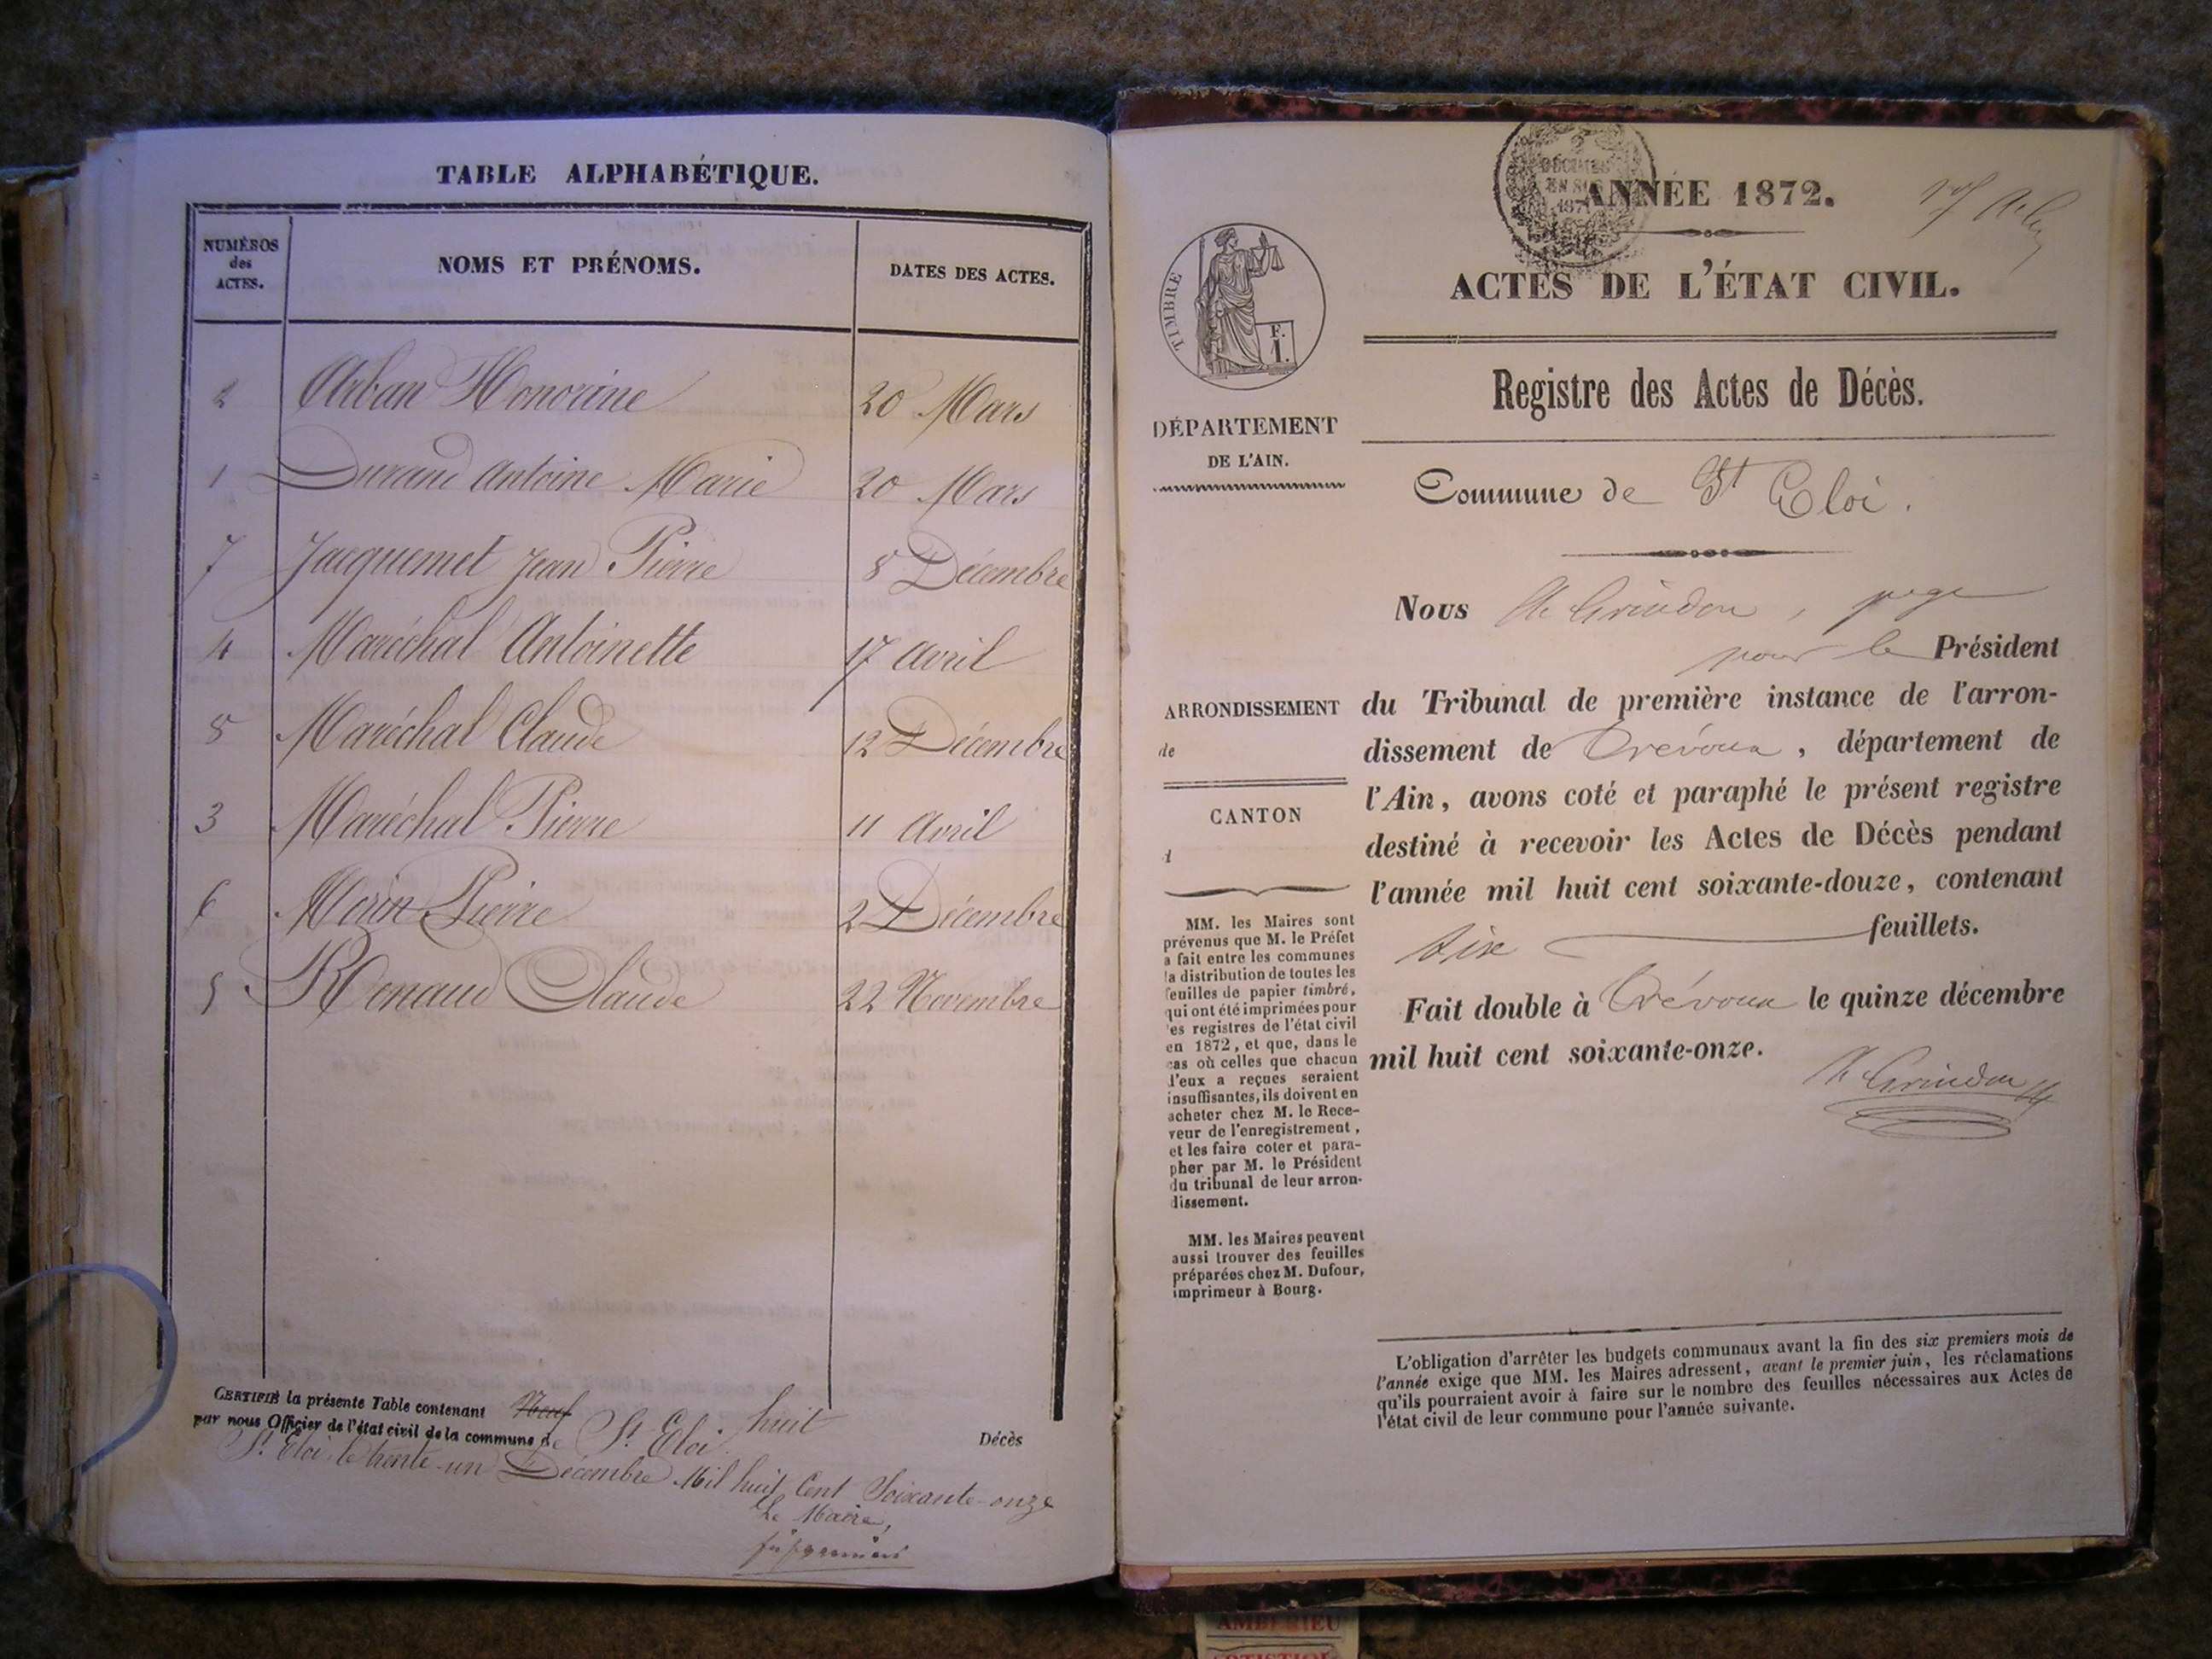 TABLE ALPHABÉTIQUE.
NUMÉROS
des
ACTES.
NOMS ET PRÉNOMS.
DATES DES ACTES.
2 Arban Honorine 20 Mars
1 Durand Antoine Marie 20 Mars
7 Jacquemet Jean Pierre 8 Décembre
4 Maréchal Antoinette 17 avril
8 Maréchal Claude 12 Décembre
3 Maréchal Pierre 11 avril
6 Morin Pierre 2 Décembre
5 Renaud Claude 22 Novembre
CERTIFIÉ la présente Table contenant Neuf huit Décès
par nous Officier de l'état civil de la commune de St Eloi
St Eloi, le trente-un Décembre Mil huit Cent Soixante-onze
Le Maire,
DÉCIMES
ANNÉE 1872.
ACTES DE L'ÉTAT CIVIL.
TIMBRE
F.
1.
Registre des Actes de Décès.
DÉPARTEMENT
DE L'AIN.
Commune de St Eloi.
Nous Grindon, juge
pour le Président
ARRONDISSEMENT
de
CANTON
du Tribunal de première instance de l'arron-
dissement de Trévoux, département de
l'Ain, avons coté et paraphé le présent registre
destiné à recevoir les Actes de Décès pendant
l'année mil huit cent soixante-douze, contenant
six feuillets.
Fait double à Trévoux le quinze décembre
mil huit cent soixante-onze.
Grindon
MM. les Maires sont
prévenus que M. le Préfet
a fait entre les communes
la distribution de toutes les
feuilles de papier timbré,
qui ont été imprimées pour
les registres de l'état civil
en 1872, et que, dans le
cas où celles que chacun
d'eux a reçues seraient
insuffisantes, ils doivent en
acheter chez M. le Rece-
veur de l'enregistrement,
et les faire coter et para-
pher par M. le Président
du tribunal de leur arron-
dissement.
MM. les Maires peuvent
aussi trouver des feuilles
préparées chez M. Dufour,
imprimeur à Bourg.
L'obligation d'arrêter les budgets communaux avant la fin des six premiers mois de
l'année exige que MM. les Maires adressent, avant le premier juin, les réclamations
qu'ils pourraient avoir à faire sur le nombre des feuilles nécessaires aux Actes de
l'état civil de leur commune pour l'année suivante.
AMBERIEU